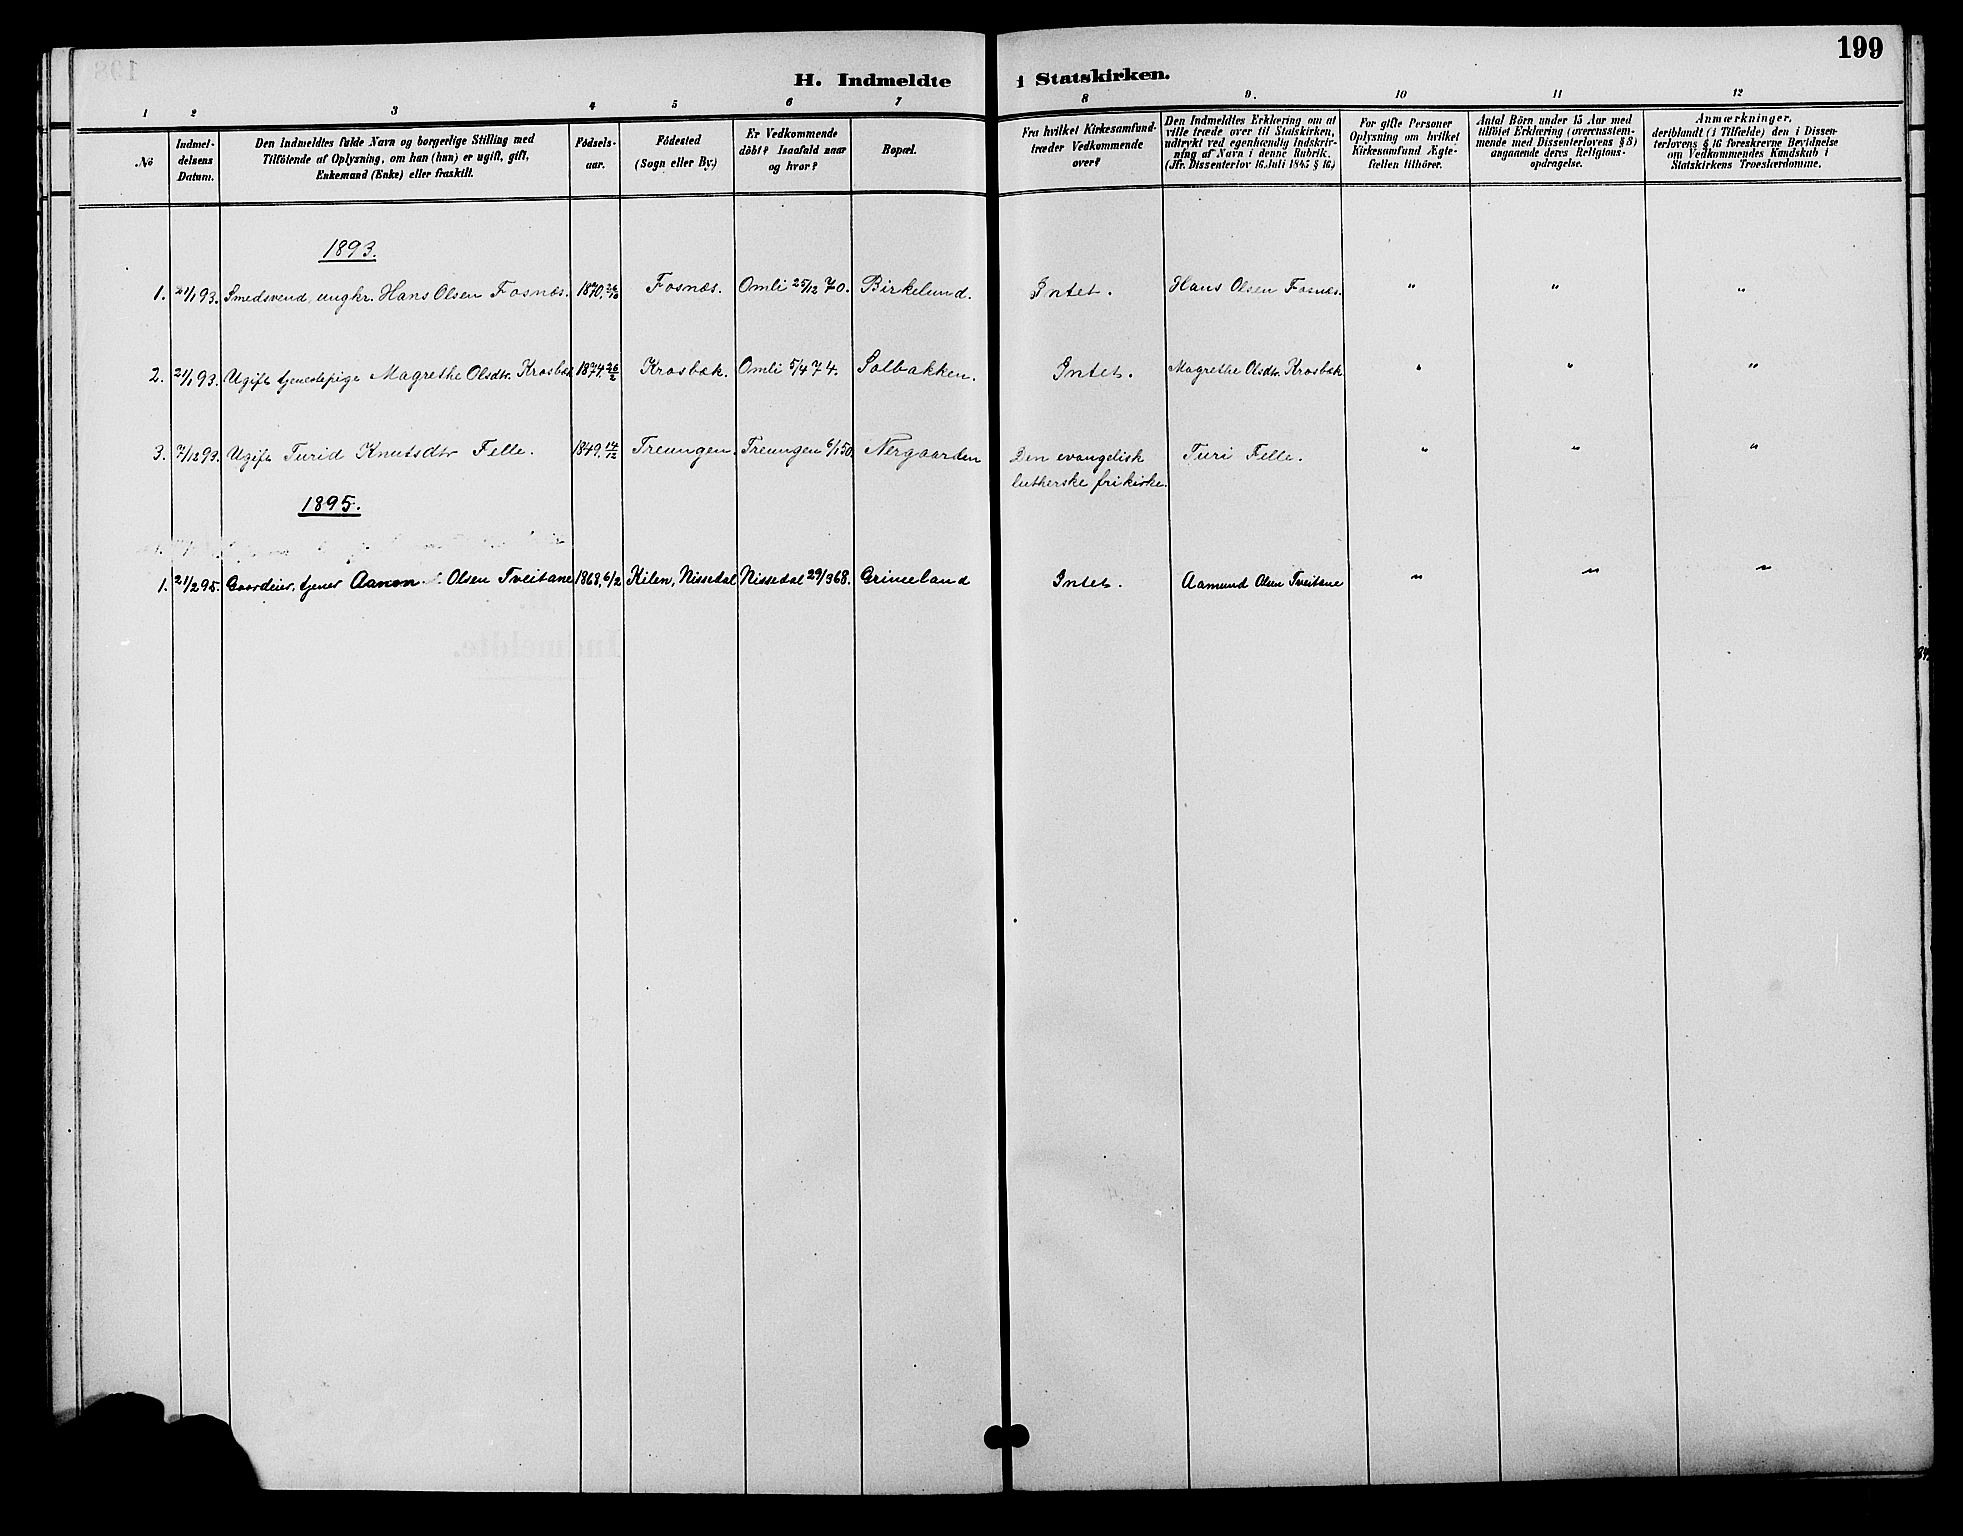 199
H. Indmeldte i Statskirken.
1 2 3 4 5 6 7 8 9. 10 11 12
No
Indmel-
delsens
Datum.
Den Indmeldtes fulde Navn og borgerlige Stilling med
Tilföiende af Oplysning, om han (hun) er ugift, gift,
Enkemand (Enke) eller fraskilt.
Födsels-
aar.
Födested
(Sogn eller By.)
Er Vedkommende
döbt? Isaafald naar
og hvor?
Bopæl.
Fra hvilket Kirkesamfund
træder Vedkommende
over?
Den Indmeldtes Erklæring om at
ville træde over til Statskirken,
udtrykt ved egenhændig Indskriv-
ning af Navn i denne Rubrik.
(Jfr. Dissenterlov 16. Juli 1845 § 16.)
For gifte Personer
Oplysning om hvilket
Kirkesamfund Ægte-
fællen tilhörer.
Antal Börn under 15 Aar med
tilföiet Erklæring (overensstem-
mende med Dissenterlovens § 8)
angaaende deres Religions-
opdragelse.
Anmærkninger,
deriblandt (i Tilfælde) den i Dissen-
terlovens § 16 foreskrevne Bevidnelse
om Vedkommendes Kundskab i
Statskirkens Troeslærdomme.
1893.
1. 21/1 93. Smedsvend, ungkr. Hans Olsen Fosnæs. 1870, 26/10 Fosnæs. Omli 25/12 70. Birkelund. Intet. Hans Olsen Fosnæs. " " "
2. 21/1 93. Ugift tjenestepige Magrethe Olsdtr. Krosbæk 1874, 26/2 Krosbæk. Omli 5/4 74. Solbakken. Intet. Magrethe Olsdtr. Krosbæk " " "
3. 7/12 93. Ugift Turid Knutsdtr Felle. 1849, 14/12 Treungen. Treungen 6/1 50. Nergaarden Den evangelisk Turi Felle. " " "
lutherske frikirke.
1895.
1. 21/2 95. Gaardeier, tjener Aanon Olsen Tveitane 1868, 6/2 Kilen, Nissedal Nissedal 29/3 68. Grimeland Intet. Aamund Olsen Tveitane " " "